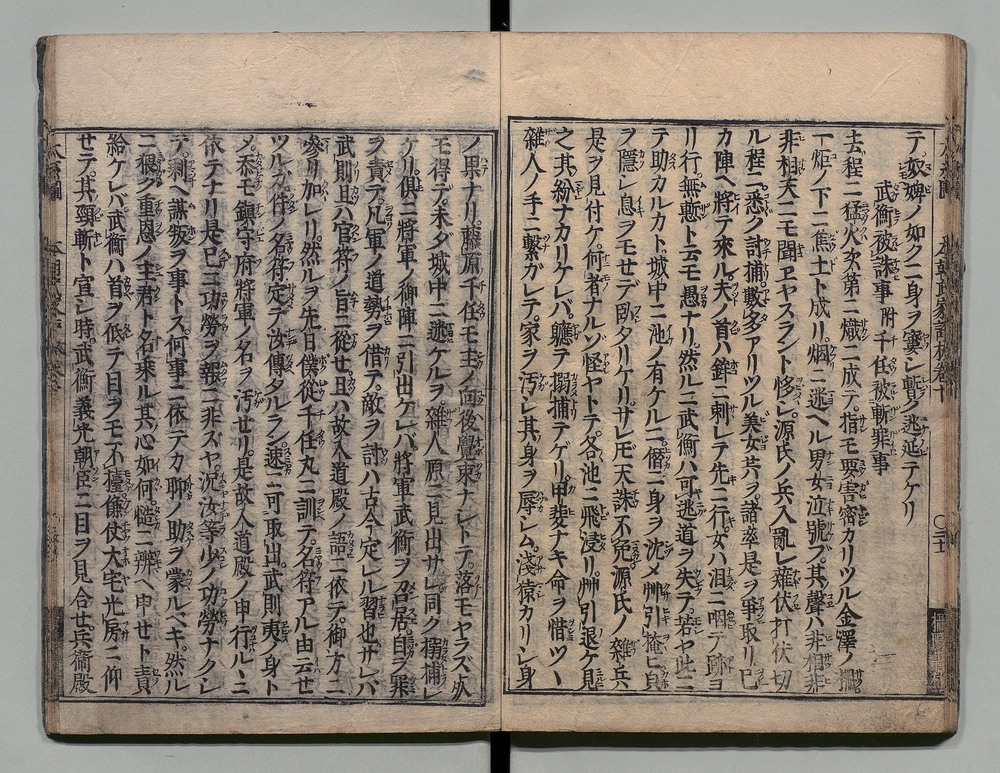 テ奴婢ノ如クニ身ヲ窶シ暫ク逃延テケリ
武衡被誅事附千任被斬罪事
去程ニ猛火次第ニ熾ニ成テ指モ要害密カリツル金澤ノ
一炬ノ下ニ焦土ト成リ。烟ニ迷ヘル男女泣號ブ其聲ハ非相非
非相天ニモ聞ヱヤスラント恠シ。源氏ノ兵入亂レ薙伏打伏切
ル程ニ。悉ク討捕數多アリツル美女共ヲバ諸卒是ヲ爭取リ。己
カ陣ヘ將テ來ル。夫ノ首ハ鉾ニ刺レテ先ニ行。女ハ泪ニ咽テ跡ヨ
リ行。無慙ト云モ愚ナリ。然ルニ武衡ハ可逃道ヲ失テ。若ヤ此ニ
テ助カルカト城中ニ池ノ有ケルニ。僭ニ身ヲ沈メ艸引掩ヒ㒵
ヲ隱シ息ヲモセデ臥タリケリ。サレ𪜈天誅不免源氏ノ雜兵
是ヲ見付ケ。何者ナルソ怪ヤトテ。各池ニ飛浸リ。艸引退ケ見
之其紛ナカリケレバ。軈テ搦捕テゲリ。甲斐ナキ命ヲ惜ツヽ
雜人ノ手ニ繫カレテ。家ヲ汚シ其身ヲ辱シム。淺猿カリシ身
ノ果ナリ。藤原千任モ主ノ向後覺束ナシトテ。落モヤラズ
モ得デ。未ダ城中ニ迯ケルヲ。雜人原ニ見出サレ。同ク搦捕レ
ケリ。俱ニ將軍ノ御陣ニ引出ケレバ。將軍武衡ヲ召居。自ラ罪
ヲ責テ。凡軍ノ道勢ヲ借テ。敵ヲ討ハ古今定レル習也。サレバ
武則且ハ官符ノ旨ニ從セ。且ハ故入道殿ノ語ニ依テ。御方ニ
參リ加レリ。然ルヲ先日僕從千任丸ニ訓テ。名符アル由云セ
ツルガ。件ノ名符定テ汝傳タルラン。速ニ可取出。武則夷ノ身ト
シテ。忝モ鎮守府將軍ノ名ヲ汚セリ。是故入道殿ノ申行ルヽニ
依テナリ。是已ニ功勞ヲ報ニ非ズヤ。況汝等少ノ功勞ナクシ
テ。剩ヘ謀叛ヲ事トス。何事ニ依テカ聊ノ助ヲ蒙ルベキ。然ル
ニ猥ク重恩ノ主君ト名乘ル其心如何慥ニ辨ヘ申セト責
給ケレバ。武衡ハ首ヲ低テ目ヲモ不擡。傔仗大宅光房ニ仰
セテ。其頸斬ト宣シ時。武衡義光朝臣ニ目ヲ見合セ。兵衞殿